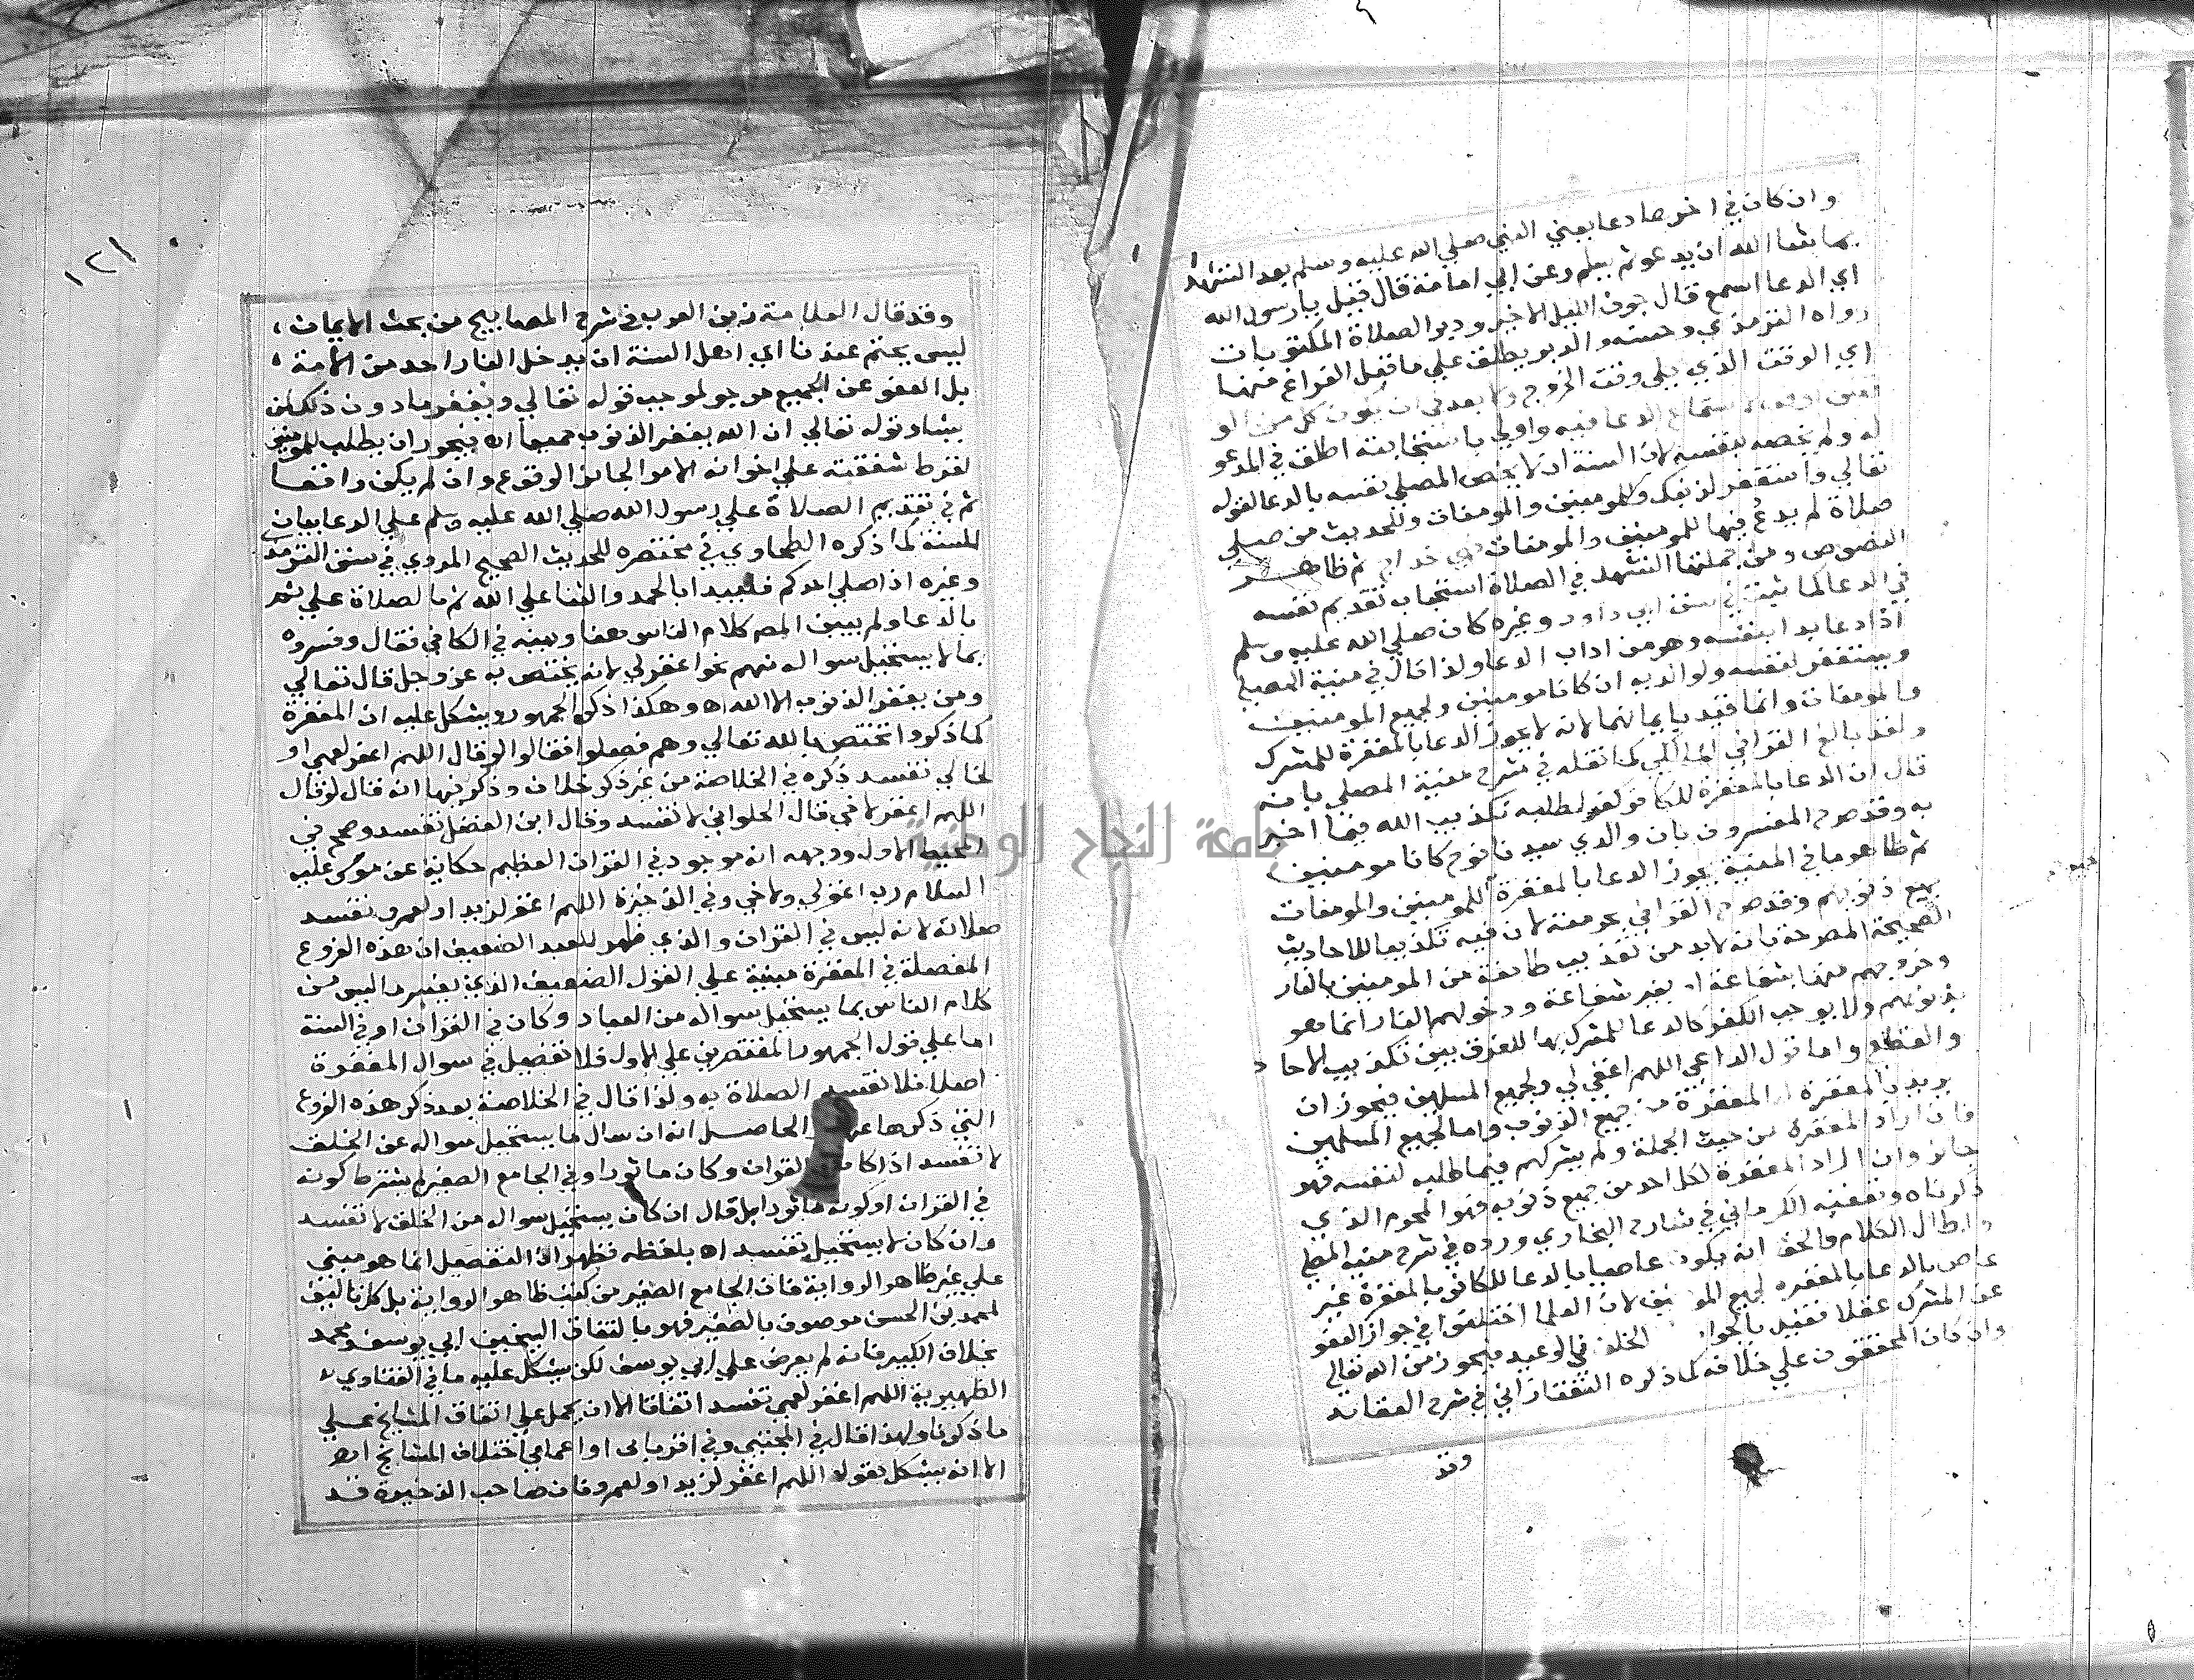 وان كان في اخرها دعا يعني النبي صلي الله عليه وسلم بعد التشهد
بما شا الله ان يدعو ثم يسلم وعن ابي امامة قال قيل يا رسول الله
اي الدعا اسمع قال جوف الليل الاخير ودبر الصلاة المكتوبات
رواه الترمذي وحسنه والدبر يطلق علي ما قبل الفراغ منها
اي الوقت الذي يلي وقت الخروج ولا بعد في ان يكون كل من الو
لاستماع الدعا فيه واولي باستجابته اطلق في المدعو
له ولم يخصه بنفسه لان السنة ان لا يخص المصلي نفسه بالدعا لقوله
تعالي واستغفر لذنبك وللمومنين والمومنات وللحديث من صلي
صلاة لم يدع فيها للمومنين والمومنات فهي خداج ثم ظاهر
النصوص ومن جملتها التشهد في الصلاة استحباب تقديم نفسه
في الدعا كما ثبت في سنن ابي داود وغيره كان صلي الله عليه وسلم
اذا دعا بدا بنفسه وهو من اداب الدعا ولذا قال في منية المصلي
ويستغفر لنفسه ولوالديه ان كانا مومنين ولجميع المومنين
والمومنات وانما قيد بايمانهما لانه لا يجوز الدعا بالمغفرة للمشرك
ولقد بالغ القرافي المالكي كما نقله في شرح منية المصلي بانه
قال ان الدعا بالمغفرة للكافر كفر لطلبه تكذيب الله فيما اخبر
به وقد صرح المفسرون بان والدي سيدنا نوح كانا مومنين
ثم ظاهر ما في المنية يجوز الدعا بالمغفرة للمومنين والمومنات
جميع ذنوبهم وقد صرح القرافي بحرمته لان فيه تكذيبا للاحاديث
الصحيحة المصرحة بانه لابد من تعذيب طائفة من المومنين بالنار
وخروجهم منها بشفاعة او بغير شفاعة ودخولهم النار انما هو
بذنوبهم ولا يوجب الكفر كالدعا للمشرك بها للفرق بين تكذيب الاحا د
والقطع واما قول الداعي اللهم اغفر لي ولجميع المسلمين فيجوز ان
يريد بالمغفرة له المغفرة من جميع الذنوب واما لجميع المسلمين
فان اراد المغفرة من حيث الجملة ولم يشركهم فيما طلبه لنفسه فهو
جائز وان اراد المغفرة لكل احد من جميع ذنوبه فهو المحرم الذي
ذكرناه وتعقبه الكرماني في شارح البخاري ورده في شرح منية المصلي
واطال الكلام والحق انه يكون عاصيا بالدعا للكافر بالمغفرة غير
عاص بالدعا بالمغفرة لجميع المومنين لان العلما اختلفوا في جواز العفو
عن المشرك عقلا فقيل بالجواز الخلف في الوعيد فيجوز من الله تعالي
وان كان المحققون علي خلافه كما ذكره التفتازاني في شرح العقائد
وقد
١٢١
وقد قال العلامة زين العرب في شرح المصابيح من بحث الايمان
ليس يحتم عندنا اي اهل السنة ان يدخل النار احد من الامة
بل العفو عن الجميع مرجو لموجب قوله تعالي ويغفر ما دون ذلك لمن
يشا وقوله تعالي ان الله يغفر الذنوب جميعا اه فيجوز ان يطلب للمومنين
لفرط شفقته علي اخوانه الامر الجائز الوقوع وان لم يكن واقعا
ثم في تقديم الصلاة علي رسول الله صلي الله عليه وسلم علي الدعا بيان
للسنة كما ذكره الطحاوي في مختصره للحديث الصحيح المروي في سنن الترمذي
وغيره اذا صلي احدكم فليبدا بالحمد والثنا علي الله ثم بالصلاة علي ثم
بالدعا ولم يبين المص كلام الناس هنا وبينه في الكافي فقال وفسروه
بما لا يستحيل سواله منهم نحو اغفر لي لانه يختص به عز وجل قال تعالي
ومن يغفر الذنوب الا الله اه وهكذا ذكر الجمهور ويشكل عليه ان المغفرة
كما ذكروا تختص بالله تعالي وهم فصلوا فقالوا لو قال اللهم اغفر لعمي او
لخالي تفسد ذكره في الخلاصة من غير ذكر خلاف وذكر فيها انه قال لو قال
اللهم اغفر لاخي قال الحلواني لا تفسد وقال ابن الفضل تفسد وصحح في
المحيط الاول ووجهه انه موجود في القران العظيم حكاية عن موسي عليه
السلام رب اغفر لي ولاخي وفي الذخيرة اللهم اغفر لزيد او لعمرو تفسد
صلاته لانه ليس في القران والذي ظهر للعبد الضعيف ان هذه الفروع
المفصلة في المغفرة مبنية علي القول الضعيف الذي يفسر ما ليس من
كلام الناس بما يستحيل سواله من العباد وكان في القران او في السنة
اما علي قول الجمهور المقتصرين علي الاول فلا تفصيل في سوال المغفرة
اصلا فلا تفسد الصلاة به ولذا قال في الخلاصة بعد ذكر هذه الفروع
التي ذكرها الحاصل انه ان سال ما يستحيل سواله عن الخلف
لا تفسد اذا كان القران وكان ماثورا وفي الجامع الصغير لم يشترط كونه
في القران او كونه ماثورا بل قال ان كان يستحيل سواله من الخلق لا تفسد
وان كان لا يستحيل تفسد اه بلفظه فظهر ان التفصيل انما هو مبني
علي غير ظاهر الرواية فان الجامع الصغير من كتب ظاهر الرواية بل كل تاليف
لمحمد بن الحسن موصوف بالصغير فهو باتفاق الشيخين ابي يوسف ومحمد
بخلاف الكبير فانه لم يعرض علي ابي يوسف لكن يشكل عليه ما في الفتاوي
الظهيرية اللهم اغفر لعمي تفسد اتفاقا الا ان يحمل علي اتفاق المشايخ علي
ما ذكرنا ولهذا قال في المجتبي وفي اقربائي او اعمامي اختلاف المشايخ اه
الا انه يشكل بقوله اللهم اغفر لزيد او لعمرو فان صاحب الذخيرة قد
جامعة النجاح الوطنية